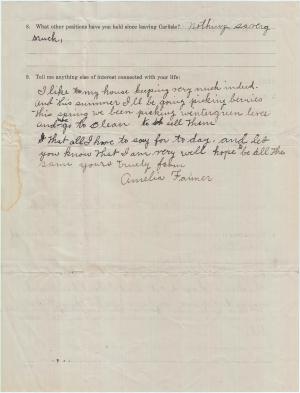 8. What other positions have you held since leaving Carlisle? Nothing
much,
9. Tell me anything else of interest connected with your life:
I like my house keeping very much indeed.
and this summer I'll be going picking berries
This spring we been picking wintergreen leves
and go to clean to sell them
that all I have to say for to day, and let
you know that I am very well hope be all the
same yours truely from
Amelia